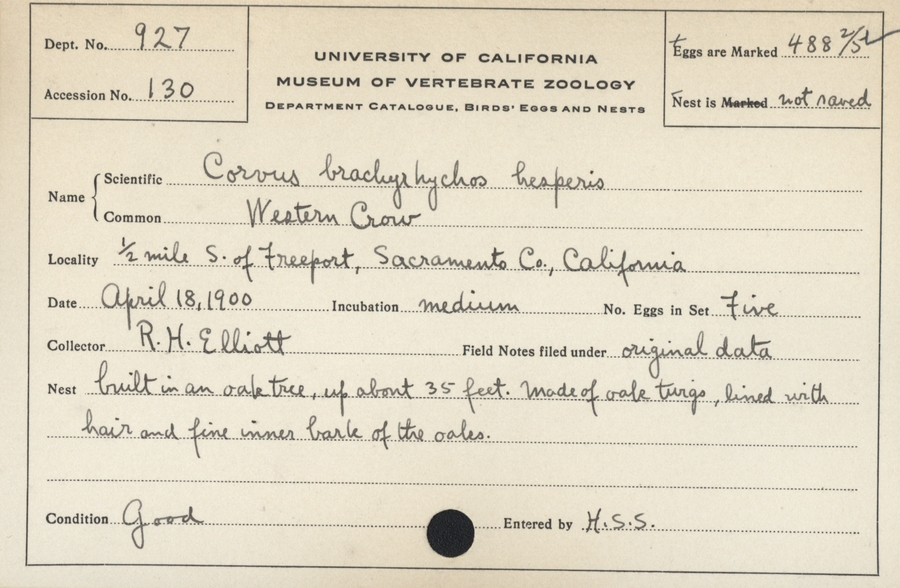 Dept. No. 927
Accession No. 130
UNIVERSITY OF CALIFORNIA
MUSEUM OF VERTEBRATE ZOOLOGY
DEPARTMENT CATALOGUE, BIRDS' EGGS AND NESTS
Eggs are Marked 488 2/5
Nest is Marked not saved
Name
Scientific Corvus brachyrhychos hesperis
Common Western Crow
Locality 1/2 mile S. of Freeport, Sacramento Co., California
Date April 18, 1900 Incubation medium No. Eggs in Set Five
Collector R. H. Elliott Field Notes filed under original data
Nest built in an oak tree, up about 35 feet. Made of oak twigs, lined with
hair and fine inner bark of the oaks.
Condition Good Entered by H.S.S.